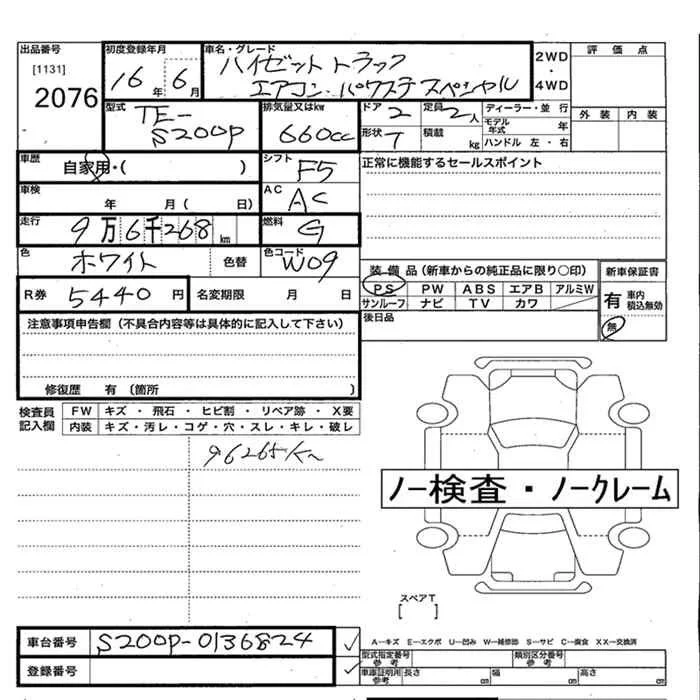 出品番号 [1131] 2076
初度登録年月 16年 6月
車名・グレード ハイゼット トラック
エアコン・パワステ スペシャル
2WD・4WD
評価点
外装 内装
型式 TE-S200P
排気量又はkw 660cc
ドア 2
定員 2人
形状 T
積載 kg
ディーラー・並行
モデル年式 年
ハンドル 左・右
車歴 自家用・( )
シフト F5
正常に機能するセールスポイント
車検 年 月( 日)
AC AC
走行 9万6千268km
燃料 G
色 ホワイト 色替
色コード W09
装備品(新車からの純正品に限り○印)
PS PW ABS エアB アルミW
サンルーフ ナビ TV カワ
新車保証書
有 車内積込無効
無
R券 5440円
名変期限 月 日
後日品
注意事項申告欄(不具合内容等は具体的に記入して下さい)
修復歴 有〔箇所 〕
検査員記入欄
FW キズ・飛石・ヒビ割・リペア跡・X要
内装 キズ・汚レ・コゲ・穴・スレ・キレ・破レ
96265Km
ノー検査・ノークレーム
スペアT
[ ]
車台番号 S200P-0136824
登録番号
A−キズ E−エクボ U−凹み W−補修跡 S−サビ C−腐食 XX−交換済
型式指定番号 参考
類別区分番号 参考
車庫証明用 参考 長さ cm 幅 cm 高さ cm